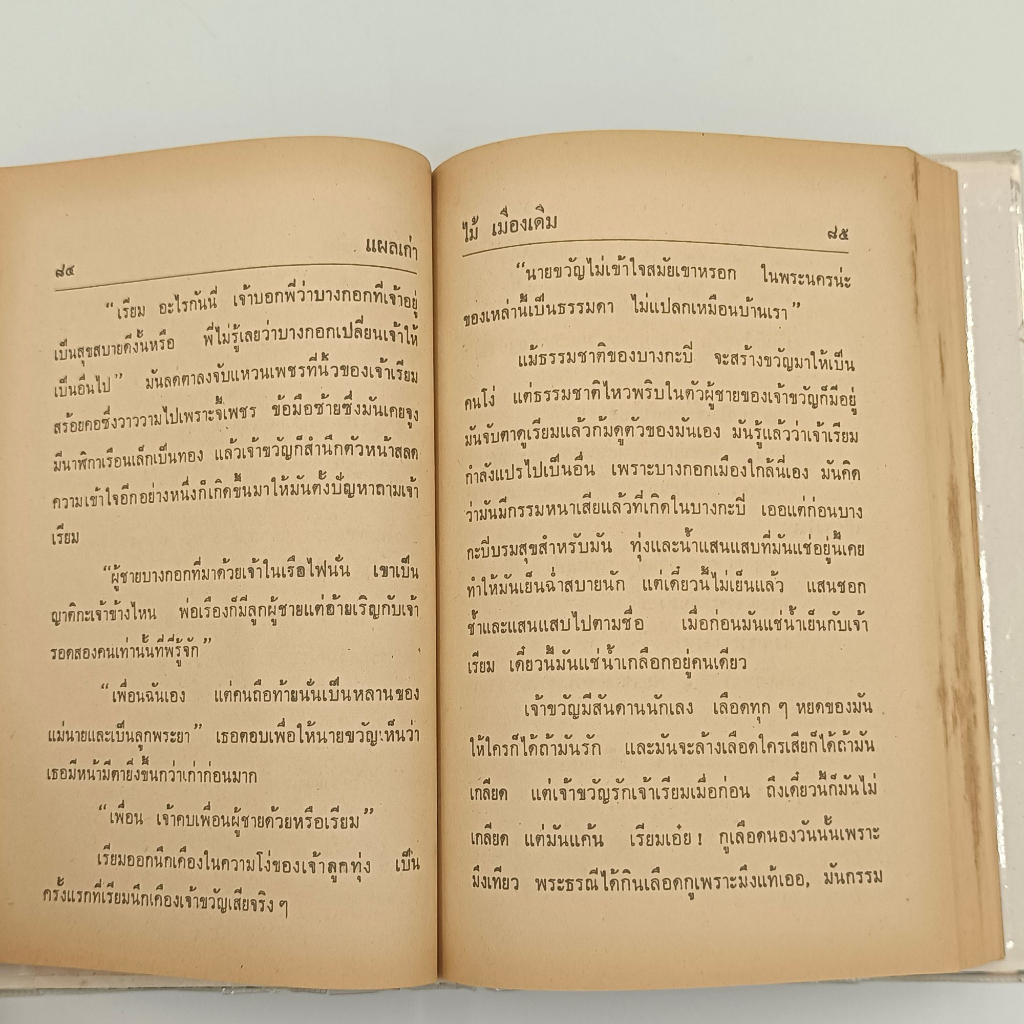 ๘๔ แผลเก่า
“เรียม อะไรกันนี่ เจ้าบอกพี่ว่าบางกอกที่เจ้าอยู่
เป็นสุขสบายดีงั้นหรือ พี่ไม่รู้เลยว่าบางกอกเปลี่ยนเจ้าให้
เป็นอื่นไป” มันลดตาลงจับแหวนเพชรที่นิ้วของเจ้าเรียม
สร้อยคอซึ่งวาววามไปเพราะจี้เพชร ข้อมือซ้ายซึ่งมันเคยจูง
มีนาฬิกาเรือนเล็กเป็นทอง แล้วเจ้าขวัญก็สำนึกตัวหน้าสลด
ความเข้าใจอีกอย่างหนึ่งก็เกิดขึ้นมาให้มันตั้งปัญหาถามเจ้า
เรียม
“ผู้ชายบางกอกที่มาด้วยเจ้าในเรือไฟนั่น เขาเป็น
ญาติกะเจ้าข้างไหน พ่อเรืองก็มีลูกผู้ชายแต่อ้ายเริญกับเจ้า
รอดสองคนเท่านั้นที่พี่รู้จัก”
“เพื่อนฉันเอง แต่คนถือท้ายนั่นเป็นหลานของ
แม่นายและเป็นลูกพระยา” เธอตอบเพื่อให้นายขวัญเห็นว่า
เธอมีหน้ามีตายิ่งขึ้นกว่าเก่าก่อนมาก
“เพื่อน เจ้าคบเพื่อนผู้ชายด้วยหรือเรียม”
เรียมออกนึกเคืองในความโง่ของเจ้าลูกทุ่ง เป็น
ครั้งแรกที่เรียมนึกเคืองเจ้าขวัญเสียจริง ๆ
ไม้ เมืองเดิม ๘๕
“นายขวัญไม่เข้าใจสมัยเขาหรอก ในพระนครน่ะ
ของเหล่านี้เป็นธรรมดา ไม่แปลกเหมือนบ้านเรา”
แม้ธรรมชาติของบางกะบี่ จะสร้างขวัญมาให้เป็น
คนโง่ แต่ธรรมชาติไหวพริบในตัวผู้ชายของเจ้าขวัญก็มีอยู่
มันจับตาดูเรียมแล้วก้มดูตัวของมันเอง มันรู้แล้วว่าเจ้าเรียม
กำลังแปรไปเป็นอื่น เพราะบางกอกเมืองใกล้นี่เอง มันคิด
ว่ามันมีกรรมหนาเสียแล้วที่เกิดในบางกะบี่ เออแต่ก่อนบาง
กะบี่บรมสุขสำหรับมัน ทุ่งและน้ำแสนแสบที่มันแช่อยู่นี้เคย
ทำให้มันเย็นฉ่ำสบายนัก แต่เดี๋ยวนี้ไม่เย็นแล้ว แสนชอก
ช้ำและแสนแสบไปตามชื่อ เมื่อก่อนมันแช่น้ำเย็นกับเจ้า
เรียม เดี๋ยวนี้มันแช่น้ำเกลือกอยู่คนเดียว
เจ้าขวัญมีสันดานนักเลง เลือดทุก ๆ หยดของมัน
ให้ใครก็ได้ถ้ามันรัก และมันจะล้างเลือดใครเสียก็ได้ถ้ามัน
เกลียด แต่เจ้าขวัญรักเจ้าเรียมเมื่อก่อน ถึงเดี๋ยวนี้ก็มันไม่
เกลียด แต่มันแค้น เรียมเอ๋ย ! กูเลือดนองวันนั้นเพราะ
มึงเทียว พระธรณีได้กินเลือดกูเพราะมึงแท้เออ, มันกรรม